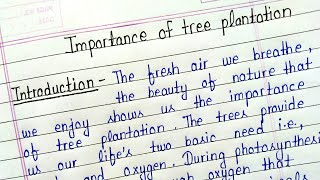 Importance of tree plantation
Introduction - The fresh air we breathe,
the beauty of nature that
we enjoy shows us the importance
of tree plantation. The trees provide
us our life's two basic need i.e.,
and oxygen. During photosynthesi
ough oxygen that